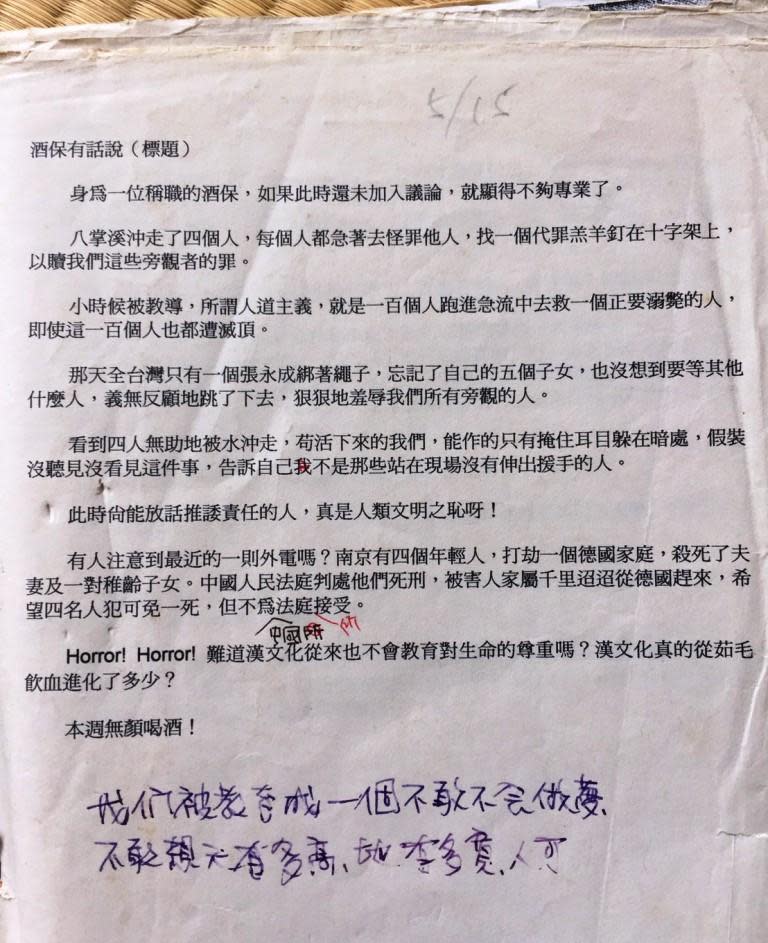 5/15
酒保有話說（標題）
身為一位稱職的酒保，如果此時還未加入議論，就顯得不夠專業了。
八掌溪沖走了四個人，每個人都急著去怪罪他人，找一個代罪羔羊釘在十字架上，
以贖我們這些旁觀者的罪。
小時候被教導，所謂人道主義，就是一百個人跑進急流中去救一個正要溺斃的人，
即使這一百個人也都遭滅頂。
那天全台灣只有一個張永成綁著繩子，忘記了自己的五個子女，也沒想到要等其他
什麼人，義無反顧地跳了下去，狠狠地羞辱我們所有旁觀的人。
看到四人無助地被水沖走，苟活下來的我們，能作的只有掩住耳目躲在暗處，假裝
沒聽見沒看見這件事，告訴自己我不是那些站在現場沒有伸出援手的人。
此時尙能放話推諉責任的人，真是人類文明之恥呀！
有人注意到最近的一則外電嗎？南京有四個年輕人，打劫一個德國家庭，殺死了夫
妻及一對稚齡子女。中國人民法庭判處他們死刑，被害人家屬千里迢迢從德國趕來，希
望四名人犯可免一死，但不為法庭接受。
中國 所
Horror! Horror! 難道漢文化從來也不會教育對生命的尊重嗎？漢文化真的從茹毛
飲血進化了多少？
本週無顏喝酒！
我们被教育成一個不敢不会做夢、
不敢親 有多高、地 多寬、人可